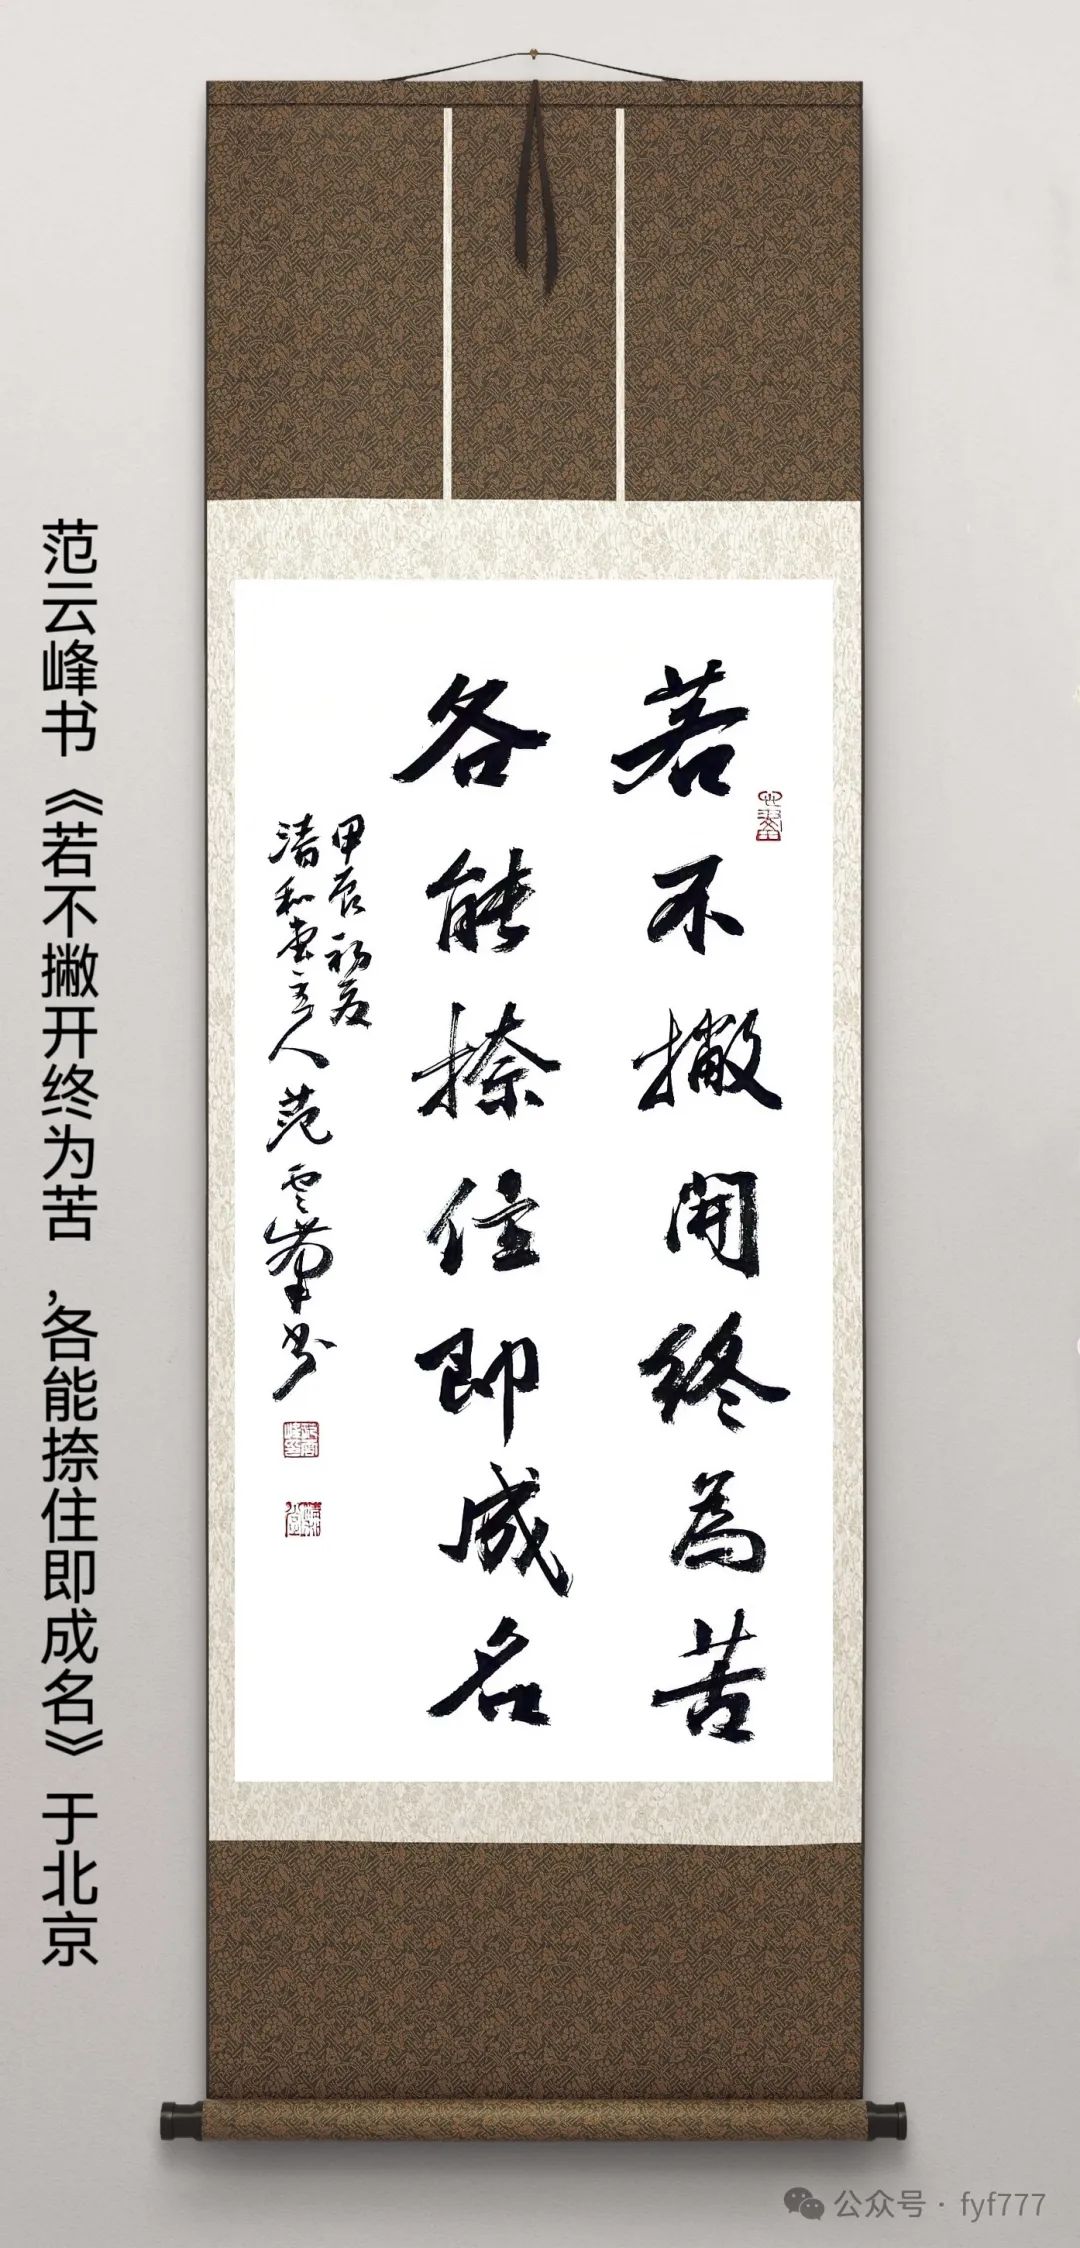 若不撇開終為苦
各能捺住即成名
甲辰初夏
清和堂主人范雲峯书
范云峰书《若不撇开终为苦,各能捺住即成名》于北京
公众号·fyf777